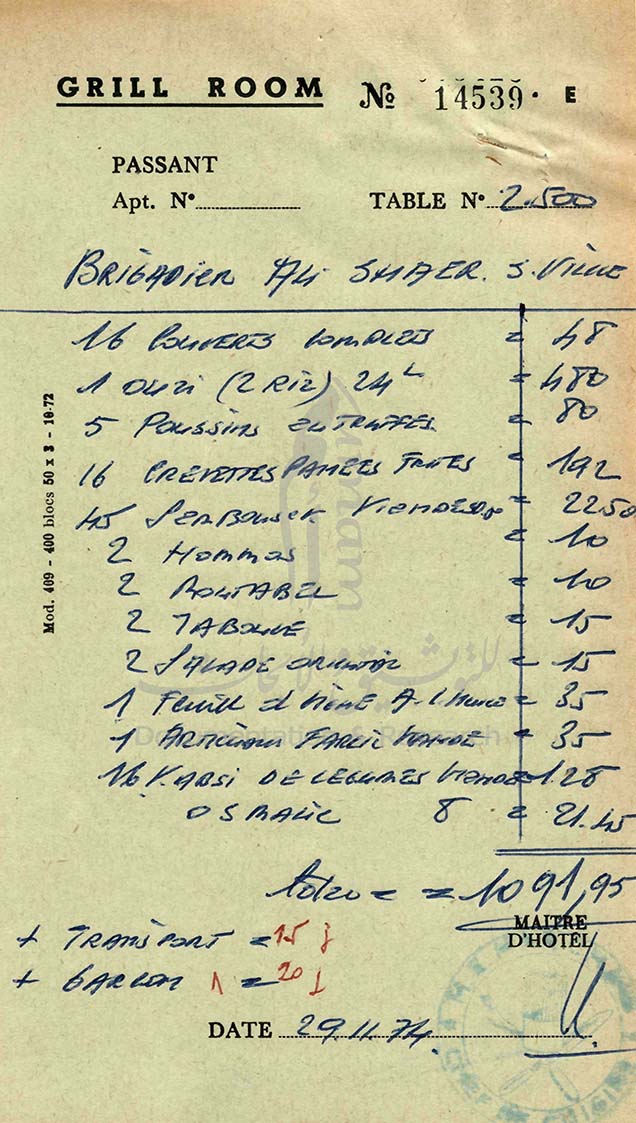 GRILL ROOM № 14539 . E
PASSANT
Apt. N° TABLE N° 2.500
BRIGADIER Ali SHAER. S. Ville
16 Couverts complets = 48
1 ouzi (2 Riz) 24 = 480
5 Poussins = 80
16 CREVETTES PANÉES Frites = 192
45 Sembousek Viande = 22.50
2 Hommos = 10
2 MOUTABEL = 10
2 TABOULE = 15
2 SALADE = 15
1 Feuill d = 35
1 FARCIE VIANDE = 35
16 DE LEGUMES Viande = 1.28
OSMALIE 8 = 21.45
total = = 1091,95
MAITRE
D'HOTEL
+ TRANSPORT = 15
+ GARCON 1 = 20
DATE 29.11.74.
Mod. 409 - 400 blocs 50 x 3 - 10-72
للتوثيق والأبحاث
Documentation & Research